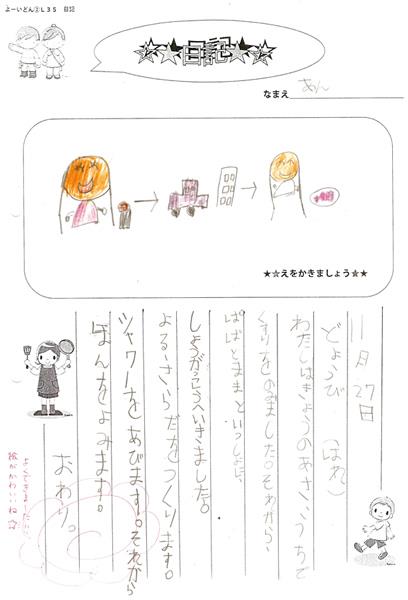 よーいどん②L35 日記
☆★日記★☆
なまえ あん
★☆えをかきましょう☆★
11月27日
どようび (はれ)
わたしはきょうのあさ、うちで
くすりをのみました。それから、
ぱぱとままといっしょに、
しょうがっこうへいきました。
よる、さらだをつくります。
シャワーをあびます。それから
ほんをよみます。
おわり。
絵がかわいいね☆